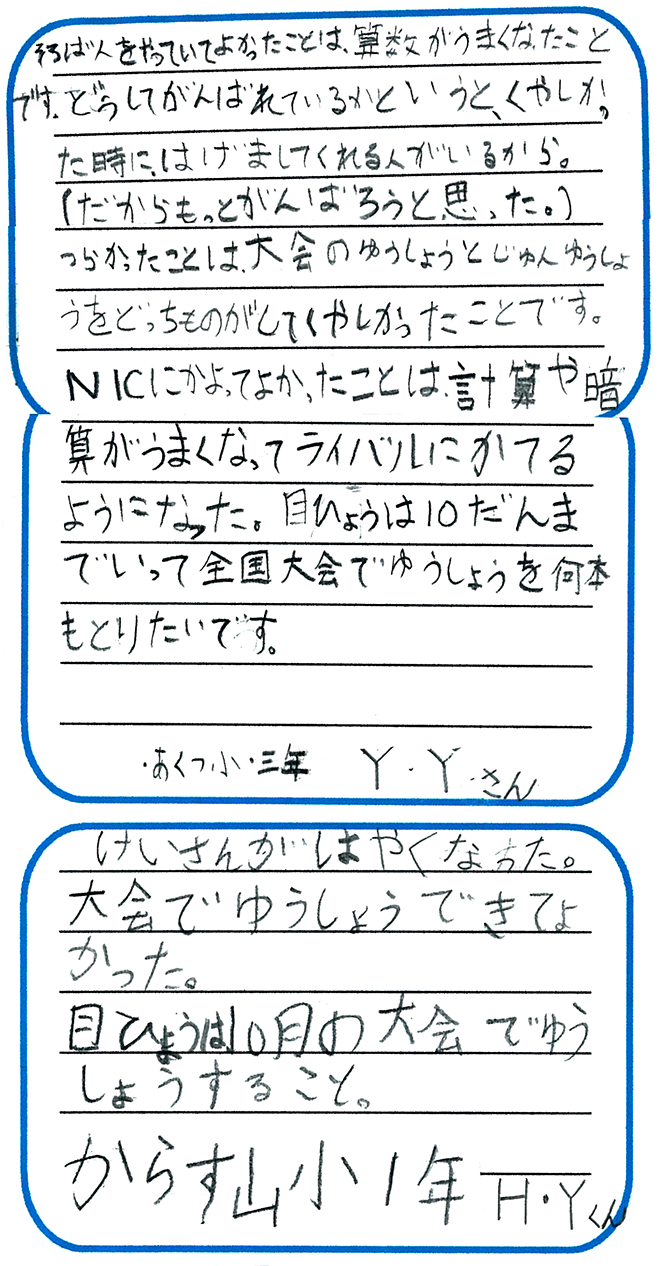 そろばんをやっていてよかったことは、算数がうまくなったこと
です。どうしてがんばれているかというと、くやしかっ
た時に、はげましてくれる人がいるから。
(だからもっとがんばろうと思った。)
つらかったことは、大会のゆうしょうとじゅんゆうしょ
うをどっちものがしてくやしかったことです。
NICにかよってよかったことは、計算や暗
算がうまくなってライバルにかてる
ようになった。目ひょうは10だんま
でいって全国大会でゆうしょうを何本
もとりたいです。
・あくつ小・三年 Y・Y・さん
けいさんがはやくなった。
大会でゆうしょうできてよ
かった。
目ひょうは10月の大会でゆう
しょうすること。
からす山小1年 H・Yくん